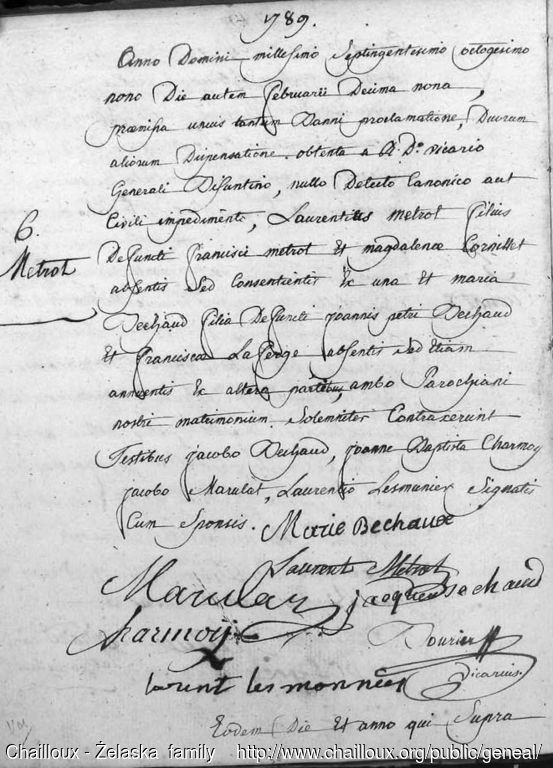 1789.
Anno Domini millesimo Septingentesimo octogesimo
nono Die autem februarii Decima nona,
præmissa unius tantum Banni proclamatione, Duorum
aliorum Dispensatione obtenta a R. D.º vicario
Generali Bisuntino, nullo Detecto Canonico aut
Civili impedimento, Laurentius metrot filius
6.
Metrot
Defuncti francisci metrot Et magdalenæ Cornillet
absentis Sed Consentientis Ex una Et maria
Bechaud filia Defuncti joannis petri Bechaud
Et franciscæ Laferge absentis Sed Etiam
annuentis Ex altera partibus, ambo Parochiani
nostri matrimonium Solemniter Contraxerunt
Testibus jacobo Bechaud, joanne Baptista Charmoy
jacobo Marulat, Laurentio Lesmunier Signatis
Cum Sponsis. Marie Bechaux
Laurent Metrot
Marulaz jacques Bechaud
Charmoy
Vicarius.
lorint les monnier
Eodem Die Et anno qui Supra
Chailloux - Żelaska family http://www.chailloux.org/public/geneal/